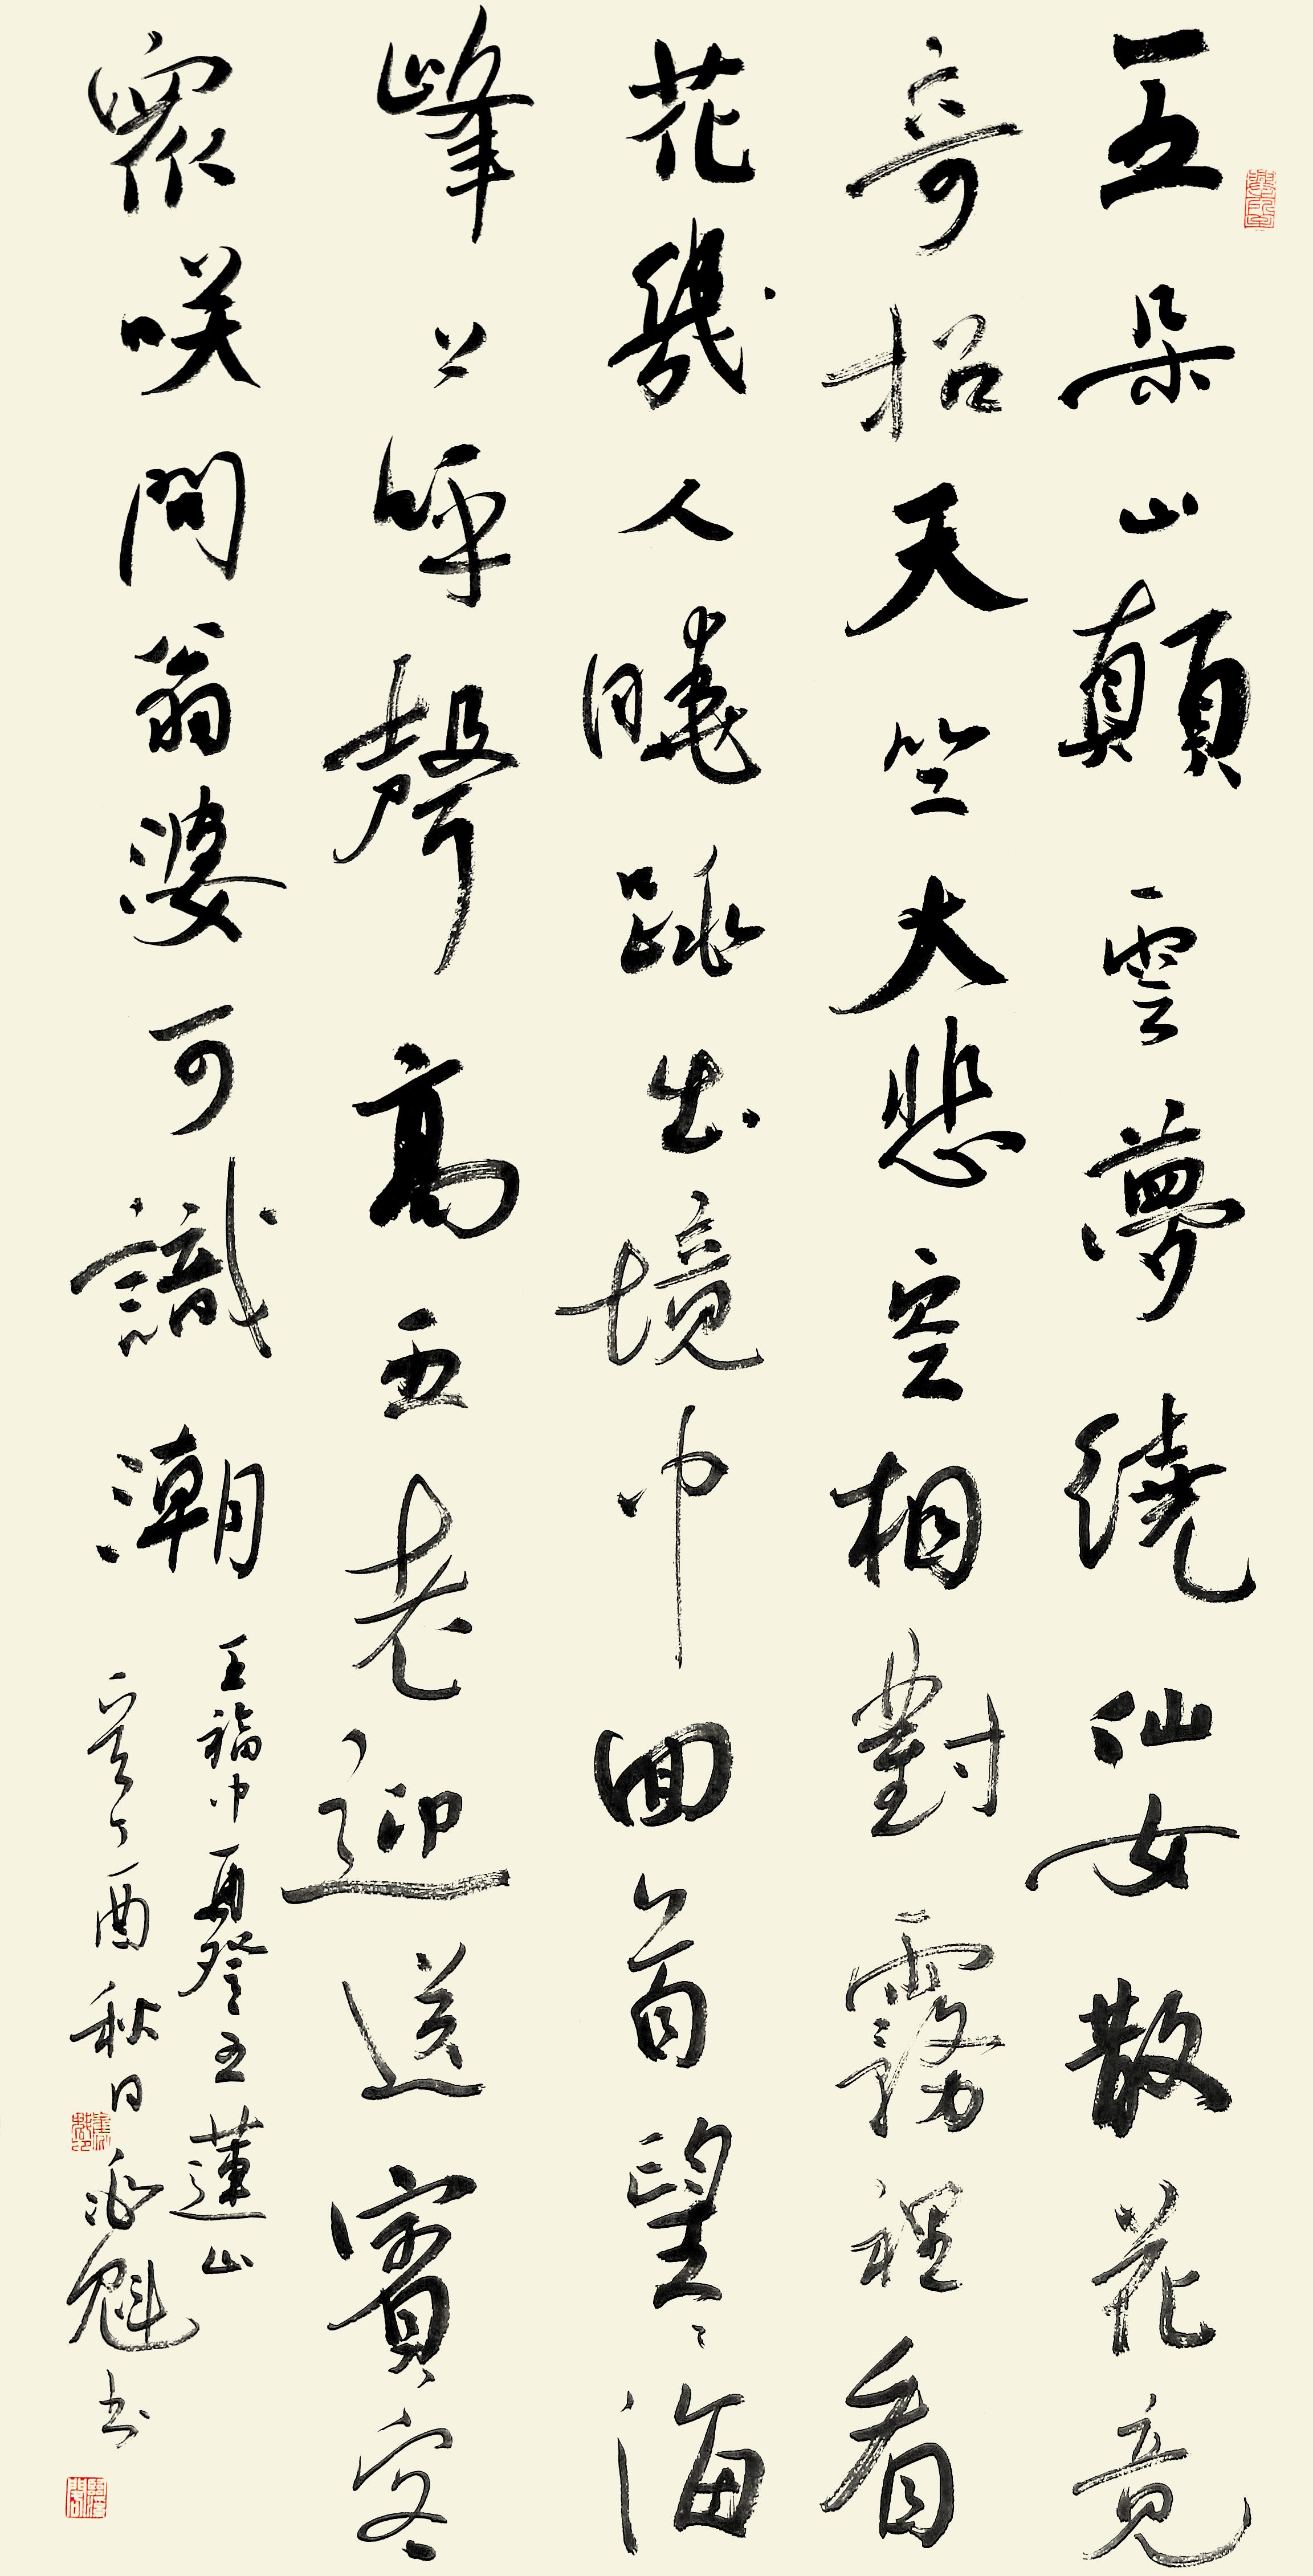 五朵山顛雲夢繞仙女散花竟
奇招天竺大悲空相對霧裡看
花幾人曉跳出境中回首望々海
峰上呼聲高五老迎送賓客
眾咲問翁婆可識潮
王福中再登五蓮山
丁酉秋日魁书